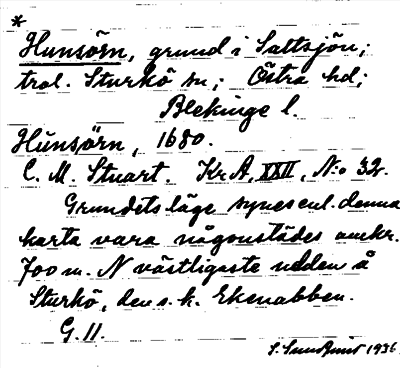 *
Hunsörn, grund i Saltsjön;
trol. Sturkö sn; Östra hd;
Blekinge l.
Hunsörn, 1680.
C. M. Stuart. Kr A, XXII, N:o 32.
Grundets läge synes enl. denna
karta vara någonstädes omkr.
700 m. N västligaste udden å
Sturkö, den s. k. Ekenabben.
G. 11.
S. Sundquist 1936